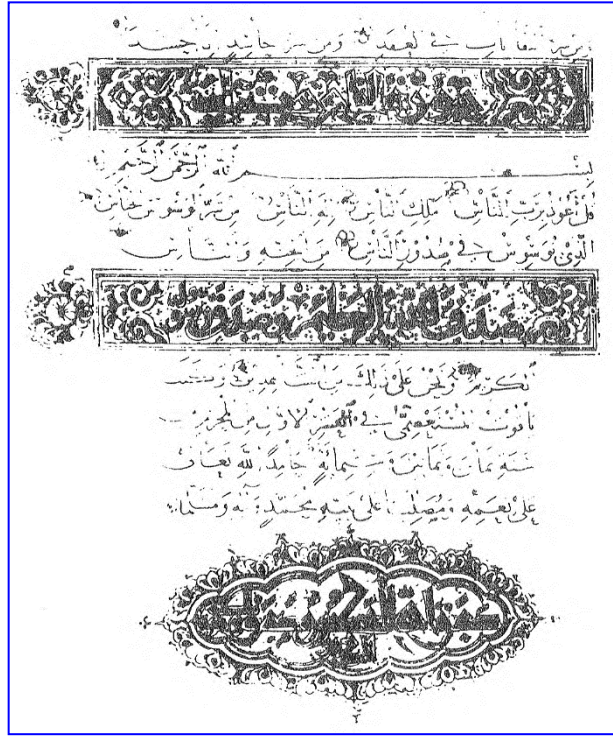 ومن شر النفاثات في العقد ومن شر حاسد إذا حسد
سورة الناس ست
بسم الله الرحمن الرحيم
قل أعوذ برب الناس ملك الناس إله الناس من شر الوسواس الخناس
الذي يوسوس في صدور الناس من الجنة والناس
صدق الله العظيم وصدق رسوله
الكريم ونحن على ذلك من الشاهدين وكتب
ياقوت المستعصمي في العشر الأول من المحرم
سنة ثمان وثمانين وستمائة حامدا لله تعالى
على نعمه ومصليا على نبيه محمد وآله ومسلما